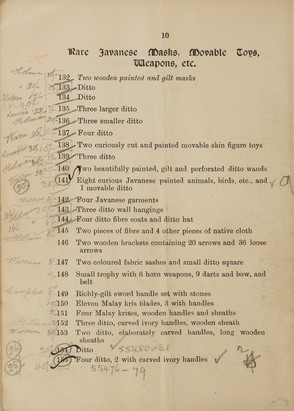 10
Rare Javanese Masks, Movable Toys,
Weapons, etc.
132 Two wooden painted and gilt masks
133 Ditto
134 Ditto
135 Three larger ditto
136 Three smaller ditto
137 Four ditto
138 Two curiously cut and painted movable skin figure toys
139 Three ditto
140 Two beautifully painted, gilt and perforated ditto wands
141 Eight curious Javanese painted animals, birds, etc., and
1 movable ditto
142 Four Javanese garments
143 Three ditto wall hangings
144 Four ditto fibre coats and ditto hat
145 Two pieces of fibre and 4 other pieces of native cloth
146 Two wooden brackets containing 20 arrows and 36 loose
arrows
147 Two coloured fabric sashes and small ditto square
148 Small trophy with 6 horn weapons, 9 darts and bow, and
belt
149 Richly-gilt sword handle set with stones
150 Eleven Malay kris blades, 3 with handles
151 Four Malay krises, wooden handles and sheaths
152 Three ditto, carved ivory handles, wooden sheath
153 Two ditto, elaborately carved handles, long wooden
sheaths
154 Ditto 55480+81
155 Four ditto, 2 with carved ivory handles
55476-79